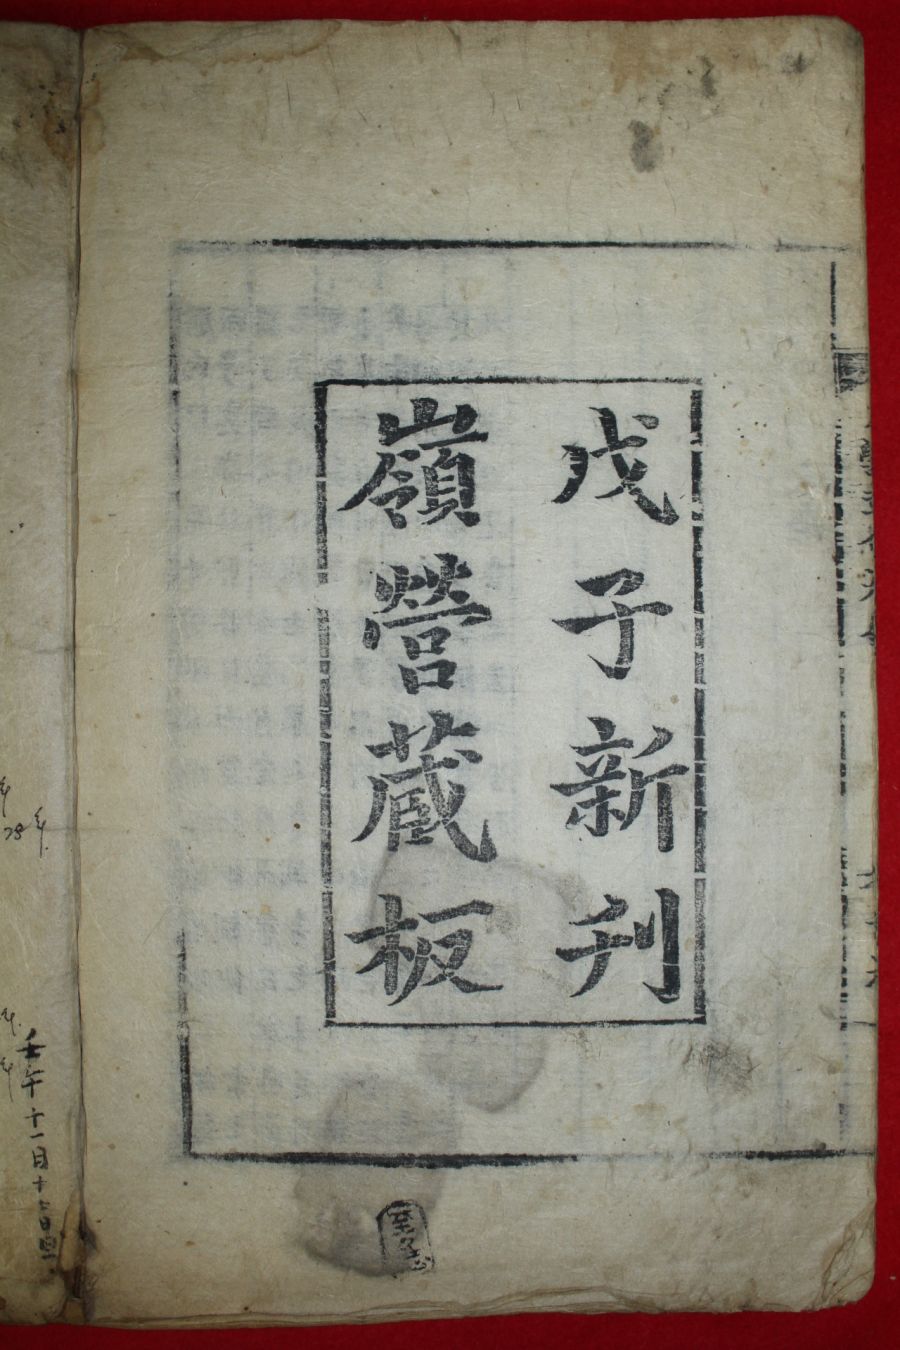 戊子新刊
嶺營藏板
壬午十一月十